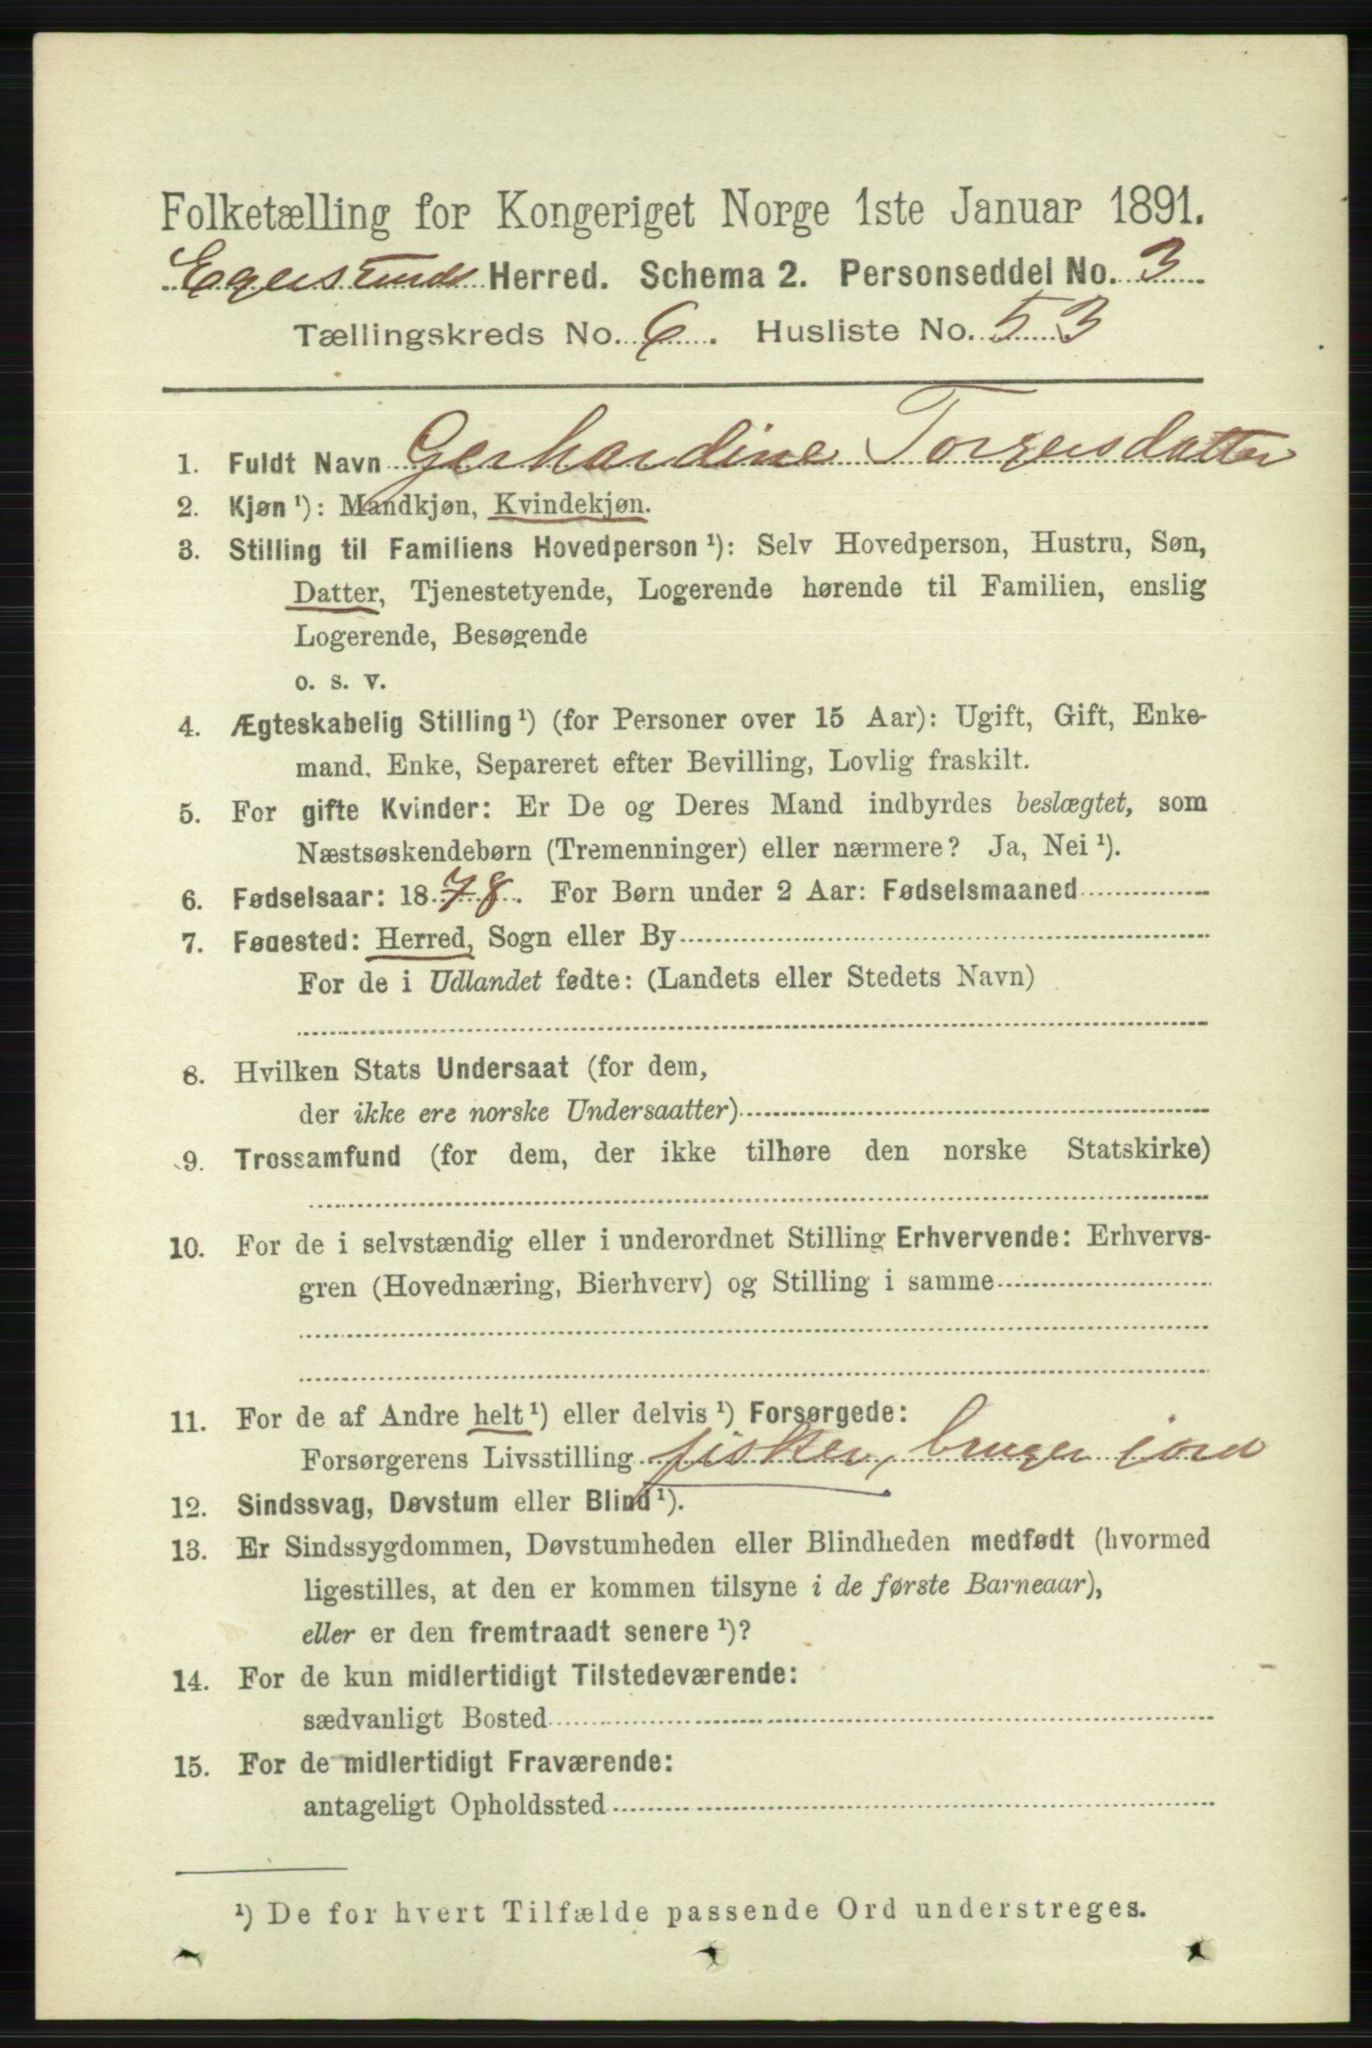 Folketælling for Kongeriget Norge 1ste Januar 1891.
Egersunds Herred. Schema 2. Personseddel No. 3
Tællingskreds No. 6. Husliste No. 53
1. Fuldt Navn Gerhardine Torgersdatter
2. Kjøn ¹): Mandkjøn, Kvindekjøn.
3. Stilling til Familiens Hovedperson ¹): Selv Hovedperson, Hustru, Søn,
Datter, Tjenestetyende, Logerende hørende til Familien, enslig
Logerende, Besøgende
o. s. v.
4. Ægteskabelig Stilling ¹) (for Personer over 15 Aar): Ugift, Gift, Enke-
mand, Enke, Separeret efter Bevilling, Lovlig fraskilt.
5. For gifte Kvinder: Er De og Deres Mand indbyrdes beslægtet, som
Næstsøskendebørn (Tremenninger) eller nærmere? Ja, Nei ¹).
6. Fødselsaar: 1878. For Børn under 2 Aar: Fødselsmaaned
7. Fødested: Herred, Sogn eller By
For de i Udlandet fødte: (Landets eller Stedets Navn)
8. Hvilken Stats Undersaat (for dem,
der ikke ere norske Undersaatter)
9. Trossamfund (for dem, der ikke tilhøre den norske Statskirke)
10. For de i selvstændig eller i underordnet Stilling Erhvervende: Erhvervs-
gren (Hovednæring, Bierhverv) og Stilling i samme
11. For de af Andre helt ¹) eller delvis ¹) Forsørgede:
Forsørgerens Livsstilling fisker, bruger jord
12. Sindssvag, Døvstum eller Blind ¹).
13. Er Sindssygdommen, Døvstumheden eller Blindheden medfødt (hvormed
ligestilles, at den er kommen tilsyne i de første Barneaar),
eller er den fremtraadt senere ¹)?
14. For de kun midlertidigt Tilstedeværende:
sædvanligt Bosted
15. For de midlertidigt Fraværende:
antageligt Opholdssted
¹) De for hvert Tilfælde passende Ord understreges.